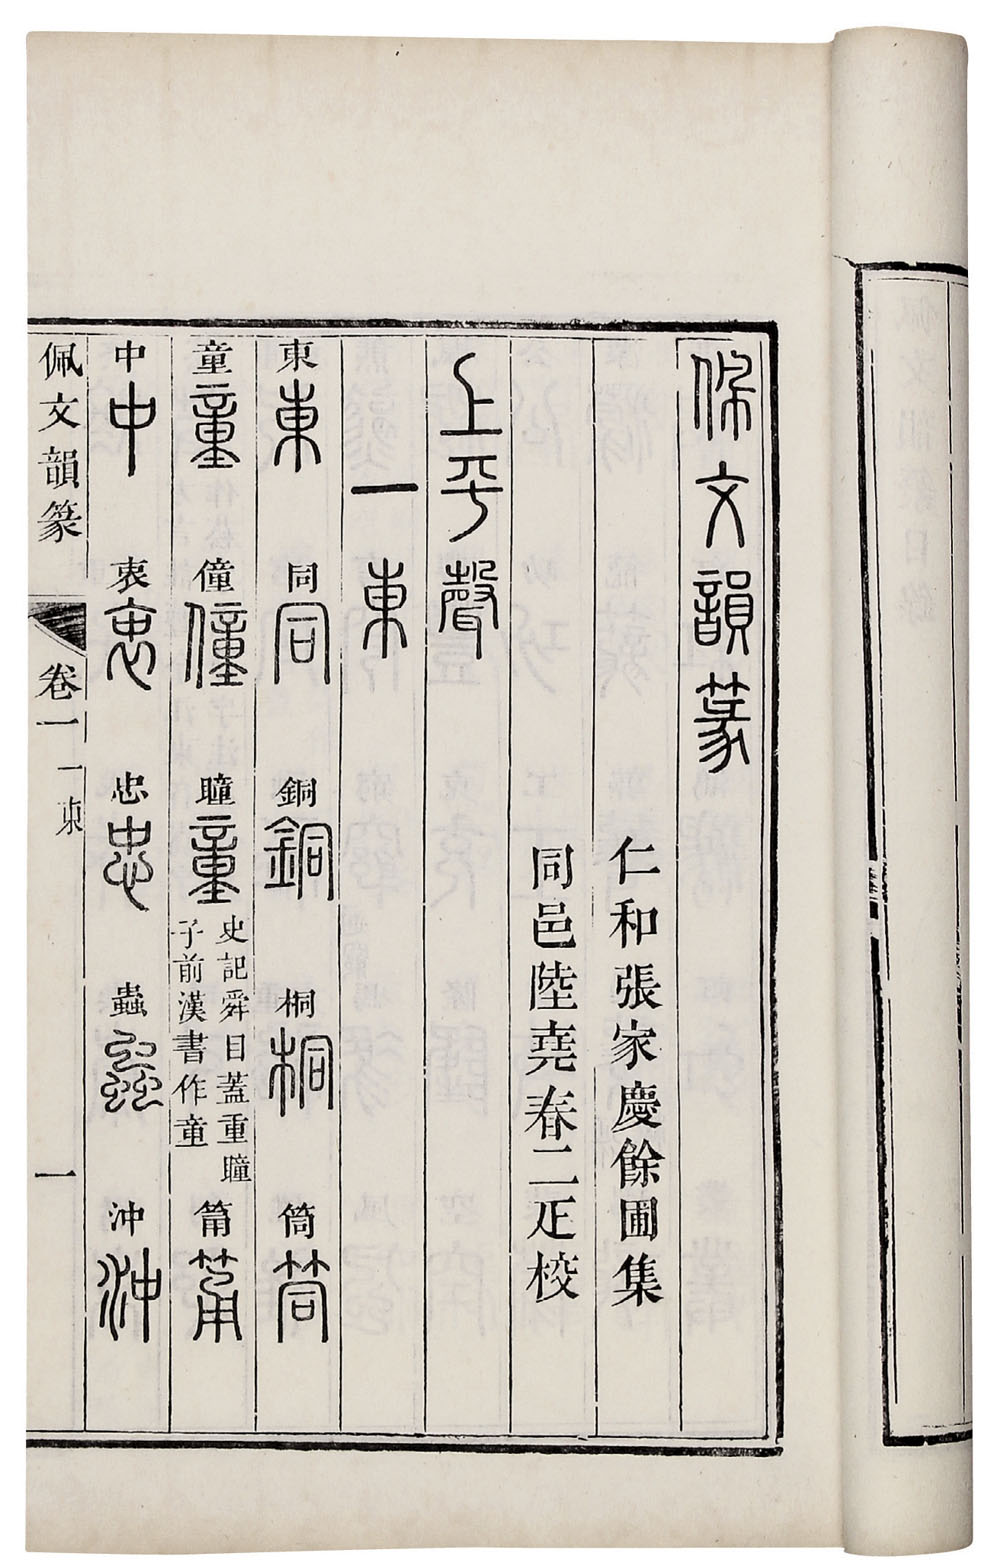 佩文韻篆
仁和張家慶餘圃集
同邑陸堯春二疋校
上平聲
一東
東東 同同 銅銅 桐桐 筒筒
童童 僮僮 瞳童 史記舜目蓋重瞳
子前漢書作童 筩筩
中中 衷衷 忠忠 蟲蟲 沖沖
佩文韻篆 卷一 一東 一